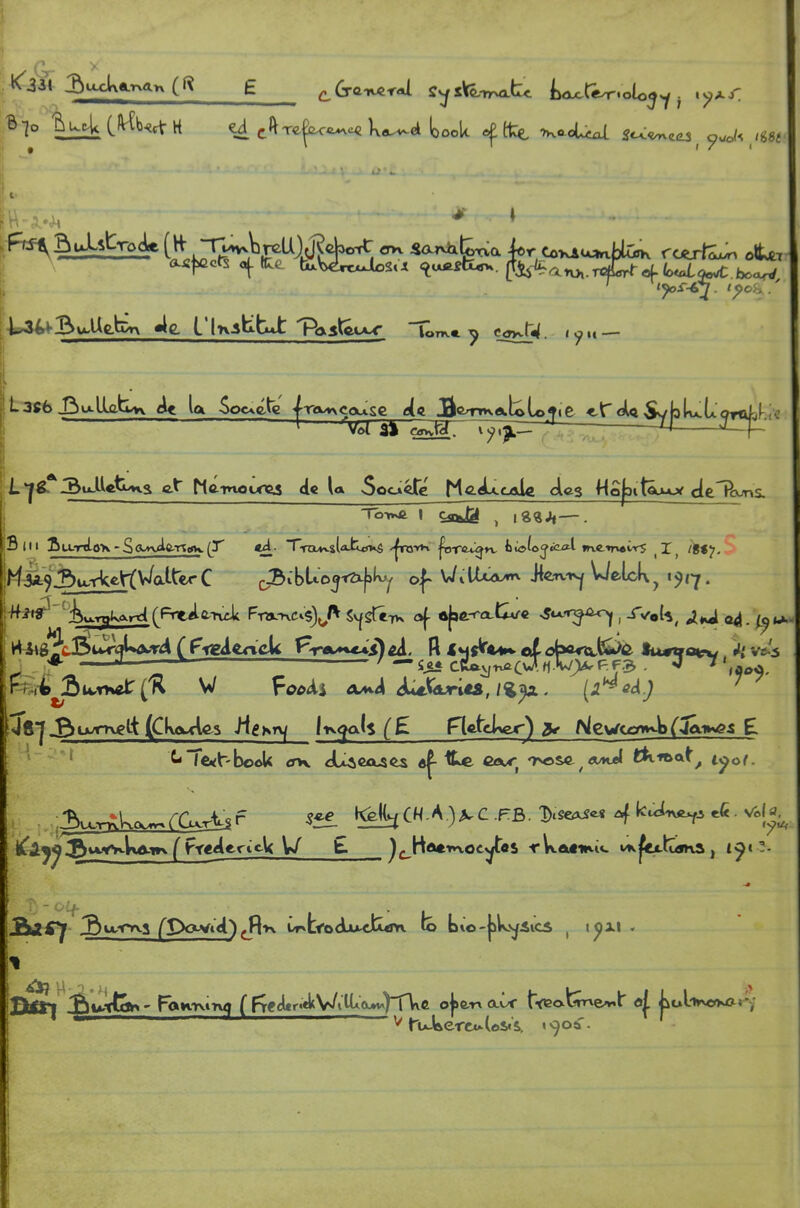 K331 Buchanan (R E General systematic bacteriology, 1925.
B70 Buck (Albert H ed A reference hand book of the medical sciences, 9vols 1886
Bulstrode (H Timbrell) Report on sanatoria for consumption certain other
aspects of the tuberculosis question. 1905-6. 1908.
L36 Bulletin de L'Institut Pasteur Tome 9 contd. 1911—
L356 Bulletin de la Société française de Dermatologie et de Syphiligraphie
Vol 23 contd. 1912—
Bulletins et Memoires de la Société Medicale des Hôpitaux de Paris.
Tome 1 contd, 1884—.
B111 Burdon-Sanderson (J ed. Translations from foreign biological memoirs, I, 1887.
Burket (Walter C Bibliography of William Henry Welch, 1917.
Burghard (Frederick Francis) A System of operative Surgery, 5vols, 2nd ed. 1914
Burghard (Frederick Francis) ed. A system of operative surgery, 4 vols
See Cheyne (W. W) & F.F.B. 1909.
Burnet (R W Foods and dietaries, 1892. (2nd ed.)
J87 Burnett (Charles Henry Ingals (E Fletcher) & Newcomb (James E
Text-book on diseases of the ear, nose, and throat, 1901.
Burnham (Curtis F see Kelly (H.A) & C.F.B. Diseases of kidneys etc. Vol 2,
Burnham (Frederick W E ) Haemocytes & haemic infections, 1913.
Burns (David) An introduction to bio-physics, 1921.
Burton-Fanning (Frederick William) The open air treatment of pulmonary
tuberculosis, 1905.